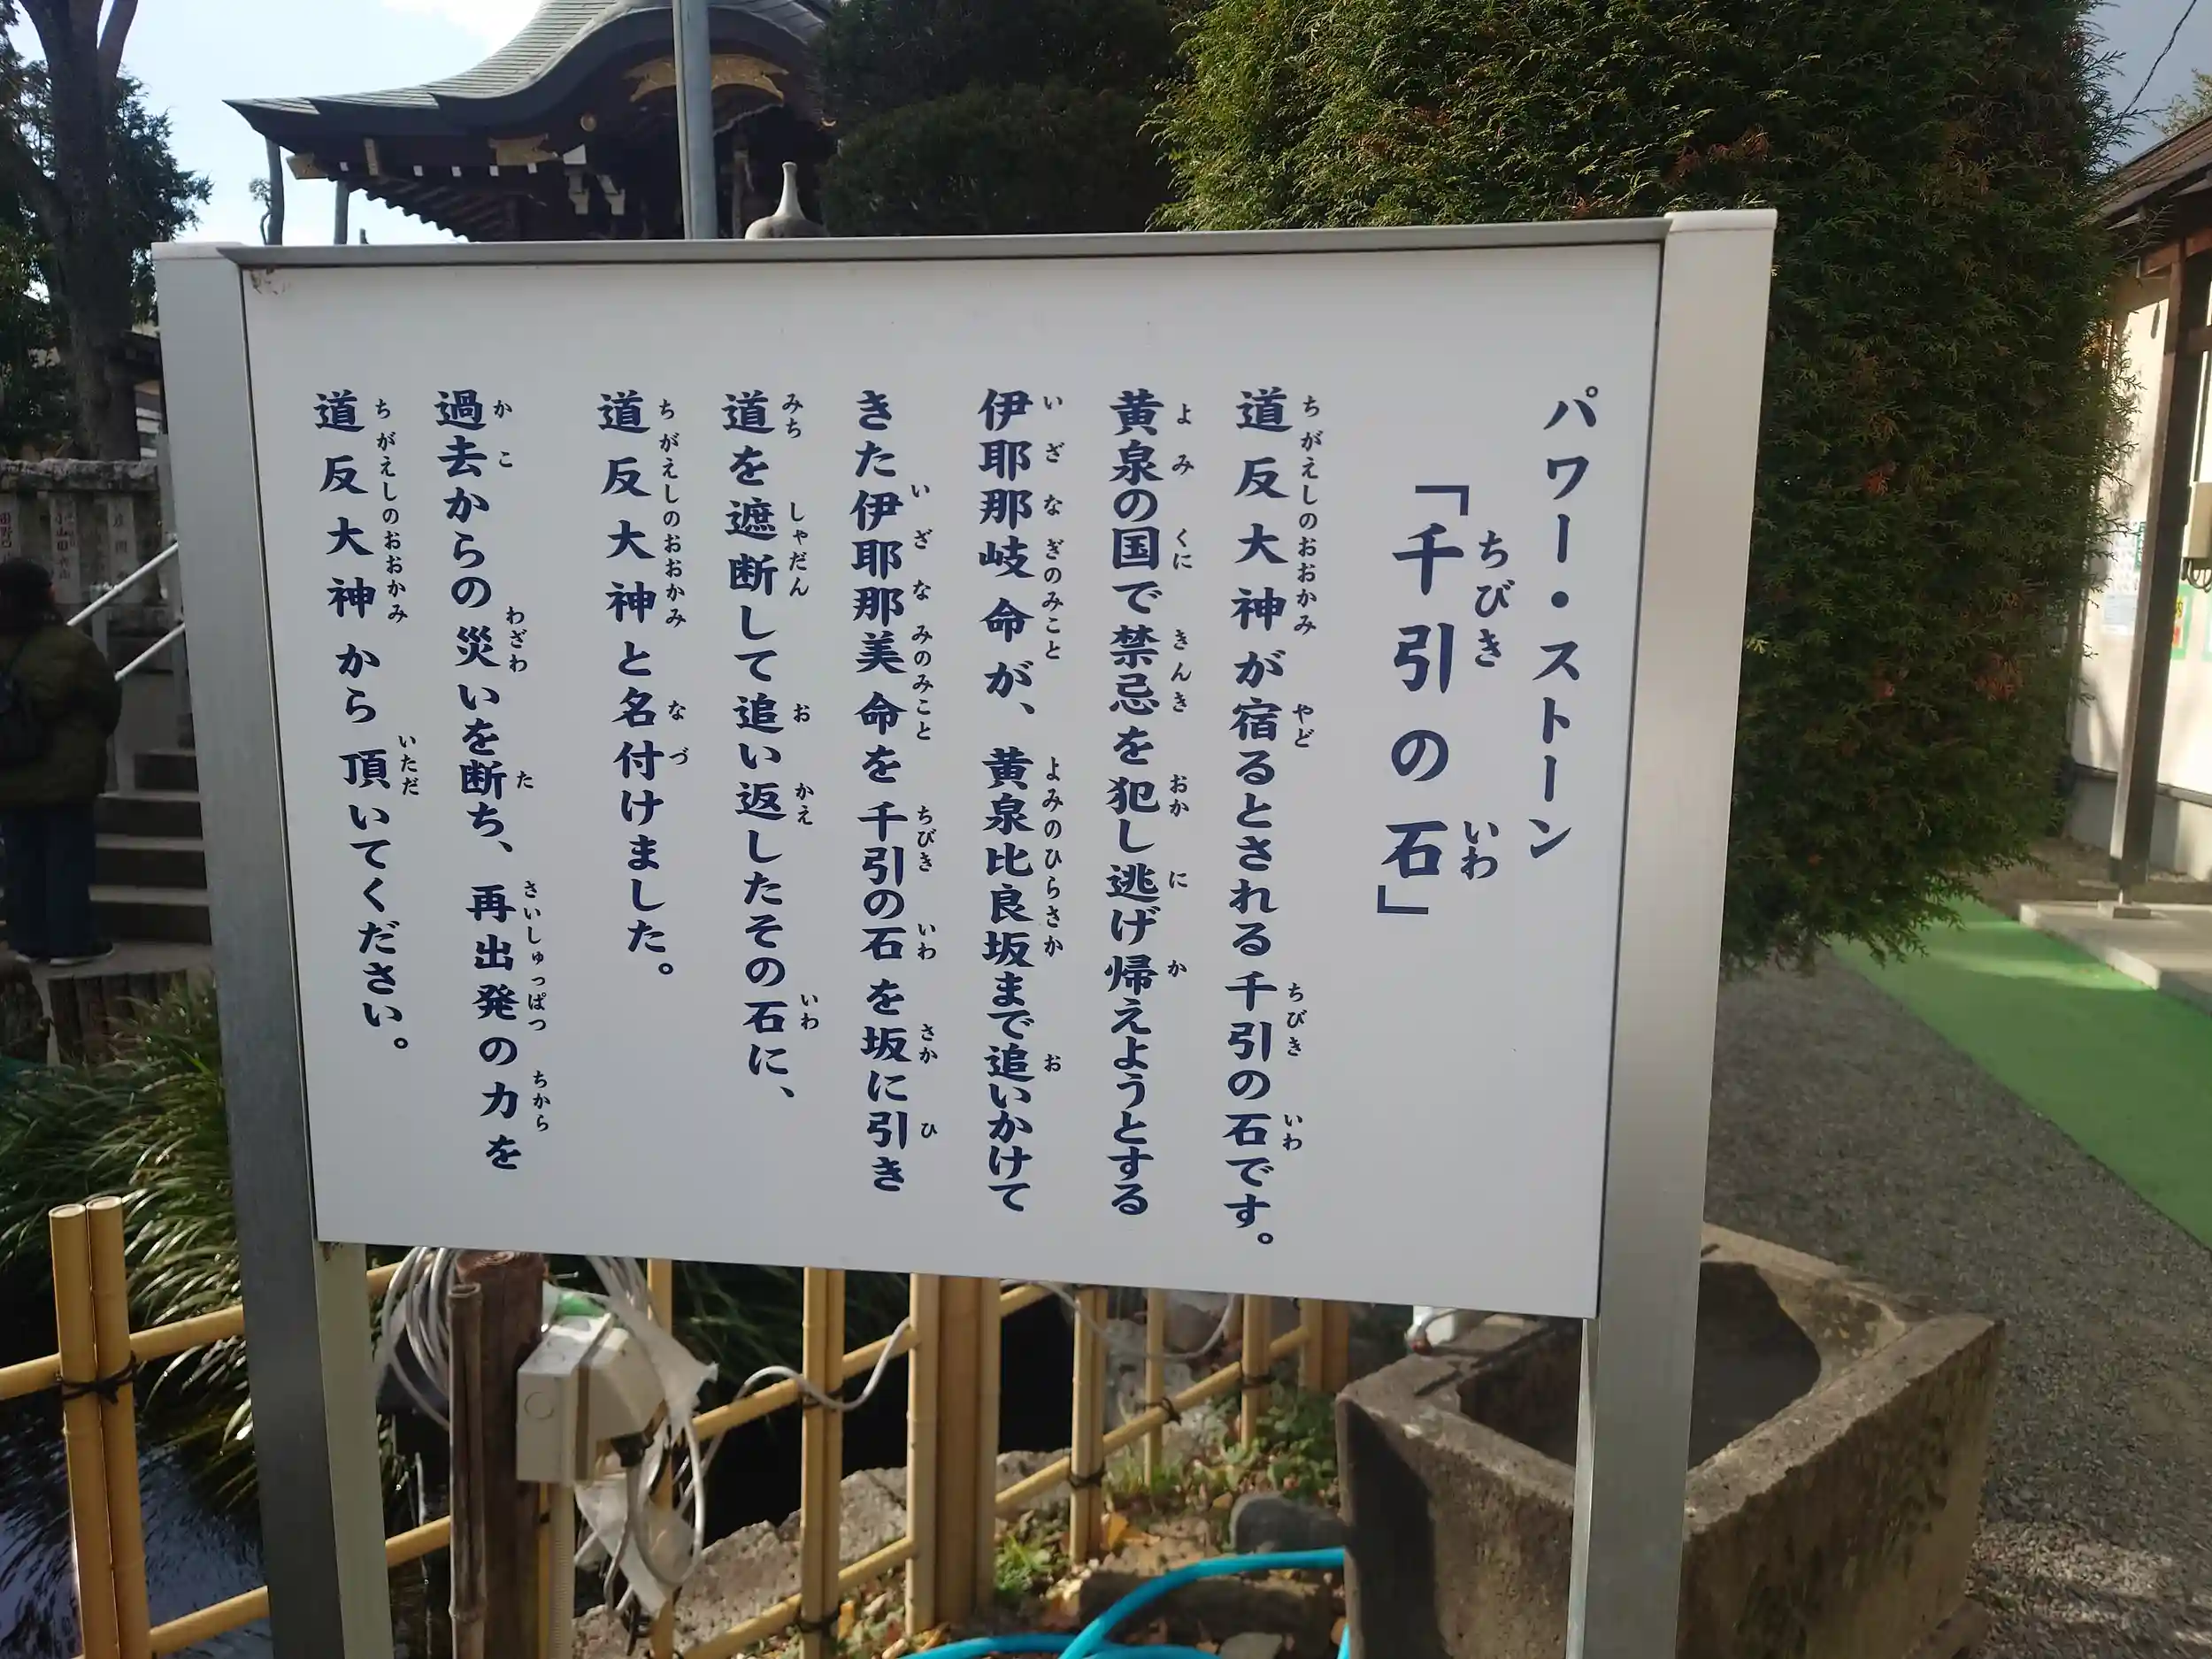 パワー・ストーン
「千引の石」
道反大神が宿るとされる千引の石です。
黄泉の国で禁忌を犯し逃げ帰えようとする
伊耶那岐命が、黄泉比良坂まで追いかけて
きた伊耶那美命を千引の石を坂に引き
道を遮断して追い返したその石に、
道反大神と名付けました。
過去からの災いを断ち、再出発の力を
道反大神から頂いてください。